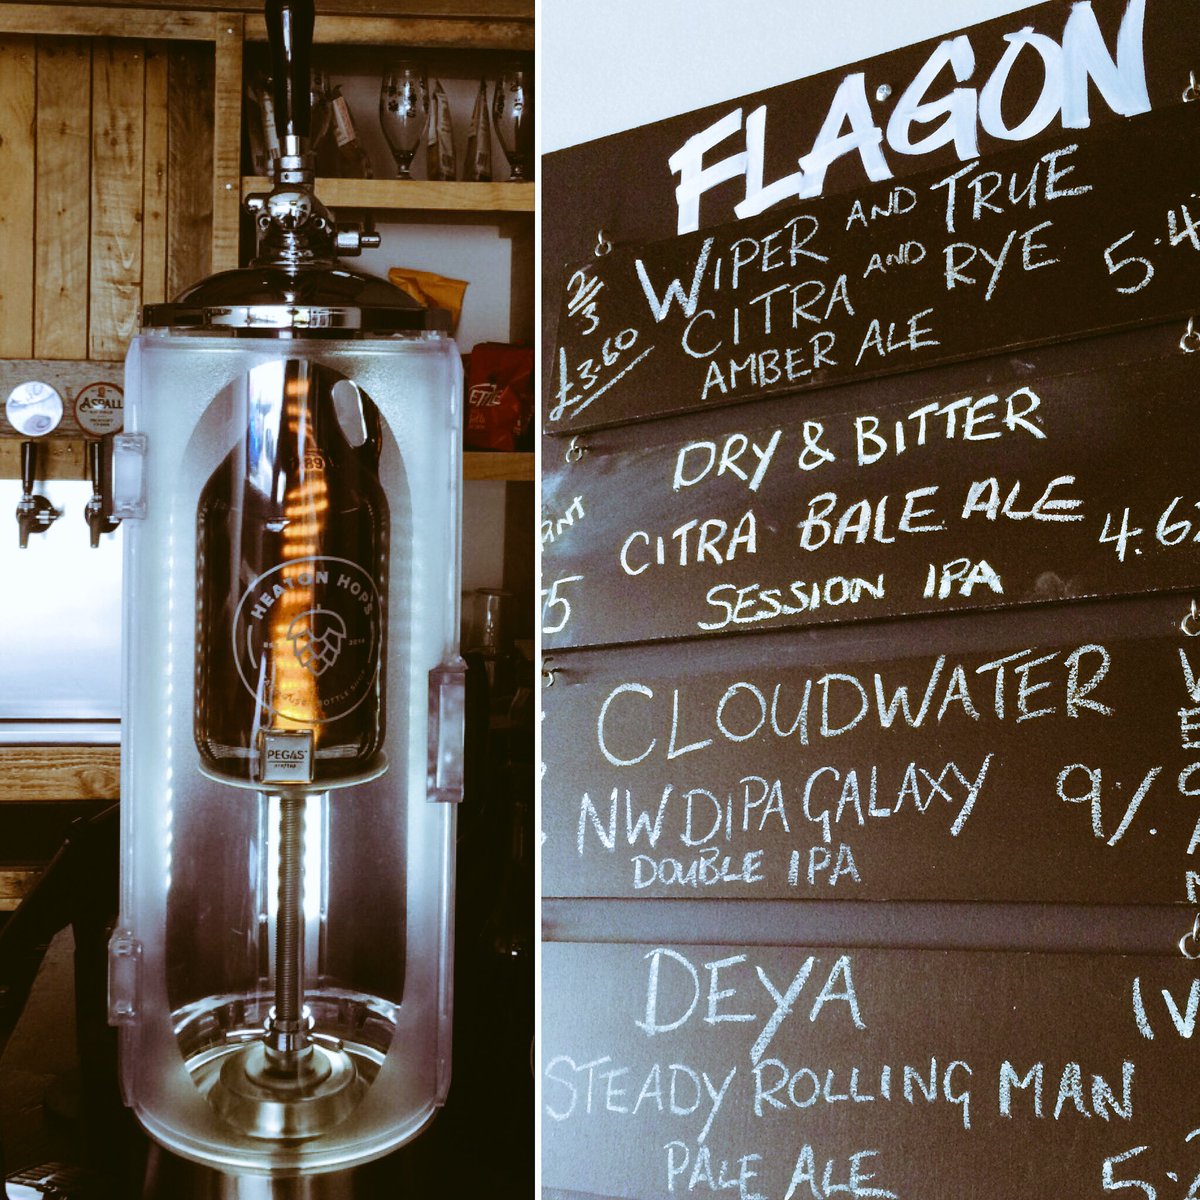 ASPALL
89
HEATON HOPS
BOTTLE SHOP
PEGAS
craftap
FLAGON
WIPER AND TRUE
2/3
CITRA AND RYE 5.4
£3.60
AMBER ALE
DRY & BITTER
CITRA BALE ALE 4.6
SESSION IPA
CLOUDWATER
NW DIPA GALAXY 9%
DOUBLE IPA
DEYA
STEADY ROLLING MAN
PALE ALE 5.2